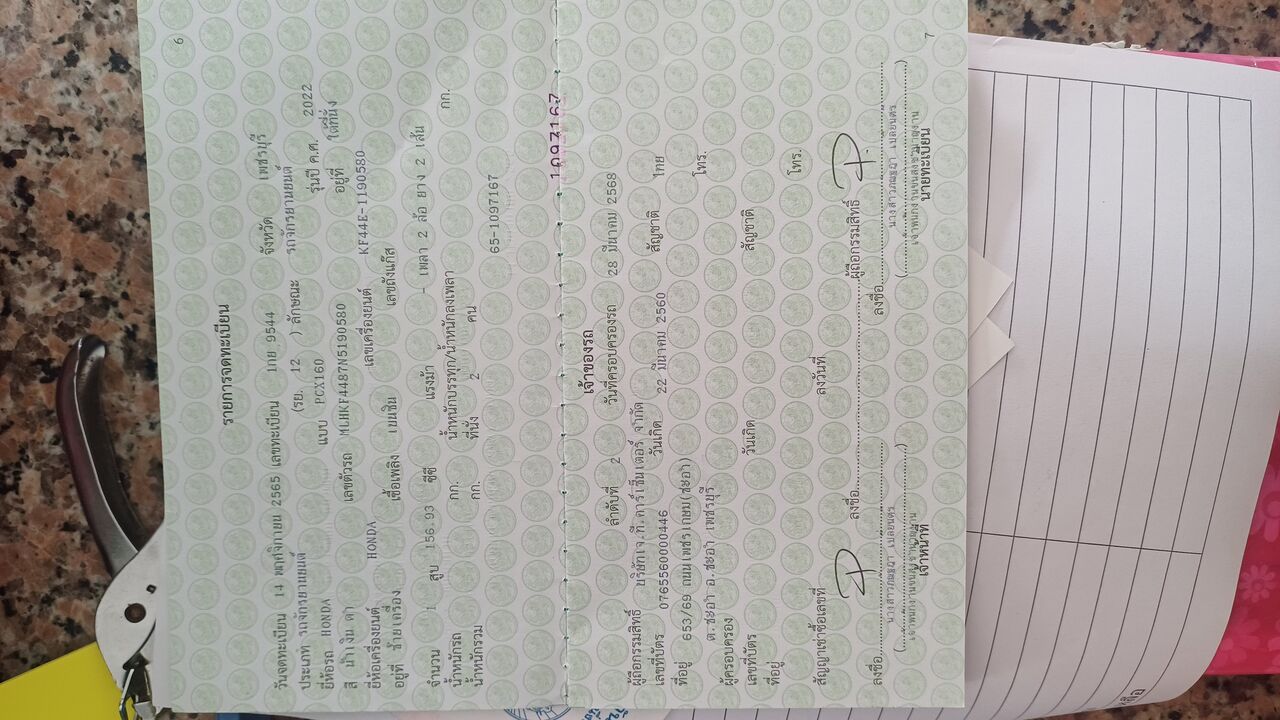 6
รายการจดทะเบียน
วันจดทะเบียน 14 พฤศจิกายน 2565 เลขทะเบียน 1กย 9544 จังหวัด เพชรบุรี
ประเภท รถจักรยานยนต์ (รย. 12 ) ลักษณะ รถจักรยานยนต์
ยี่ห้อรถ HONDA แบบ PCX160 รุ่นปี ค.ศ. 2022
สี น้ำเงิน ดำ เลขตัวรถ MLHKF4487N5190580 อยู่ที่ ใต้ที่นั่ง
ยี่ห้อเครื่องยนต์ HONDA เลขเครื่องยนต์ KF44E-1190580
อยู่ที่ ซ้ายเครื่อง เชื้อเพลิง เบนซิน เลขถังแก๊ส
จำนวน 1 สูบ 156.93 ซีซี แรงม้า - เพลา 2 ล้อ ยาง 2 เส้น
น้ำหนักรถ กก. น้ำหนักบรรทุก/น้ำหนักลงเพลา กก.
น้ำหนักรวม กก. ที่นั่ง 2 คน
65-1097167
1097167
เจ้าของรถ
ลำดับที่ 2 วันที่ครอบครองรถ 28 มีนาคม 2568
ผู้ถือกรรมสิทธิ์ บริษัทเจ.ที.คาร์เซ็นเตอร์ จำกัด
เลขที่บัตร 0765560000446 วันเกิด 22 มีนาคม 2560 สัญชาติ ไทย
ที่อยู่ 653/69 ถนนเพชรเกษม(ชะอำ) โทร.
ต.ชะอำ อ.ชะอำ เพชรบุรี
ผู้ครอบครอง
เลขที่บัตร วันเกิด สัญชาติ
ที่อยู่ โทร.
สัญญาเช่าซื้อเลขที่ ลงวันที่
ลงชื่อ ผู้ถือกรรมสิทธิ์
ลงชื่อ ลงชื่อ
เจ้าหน้าที่ นายทะเบียน
7